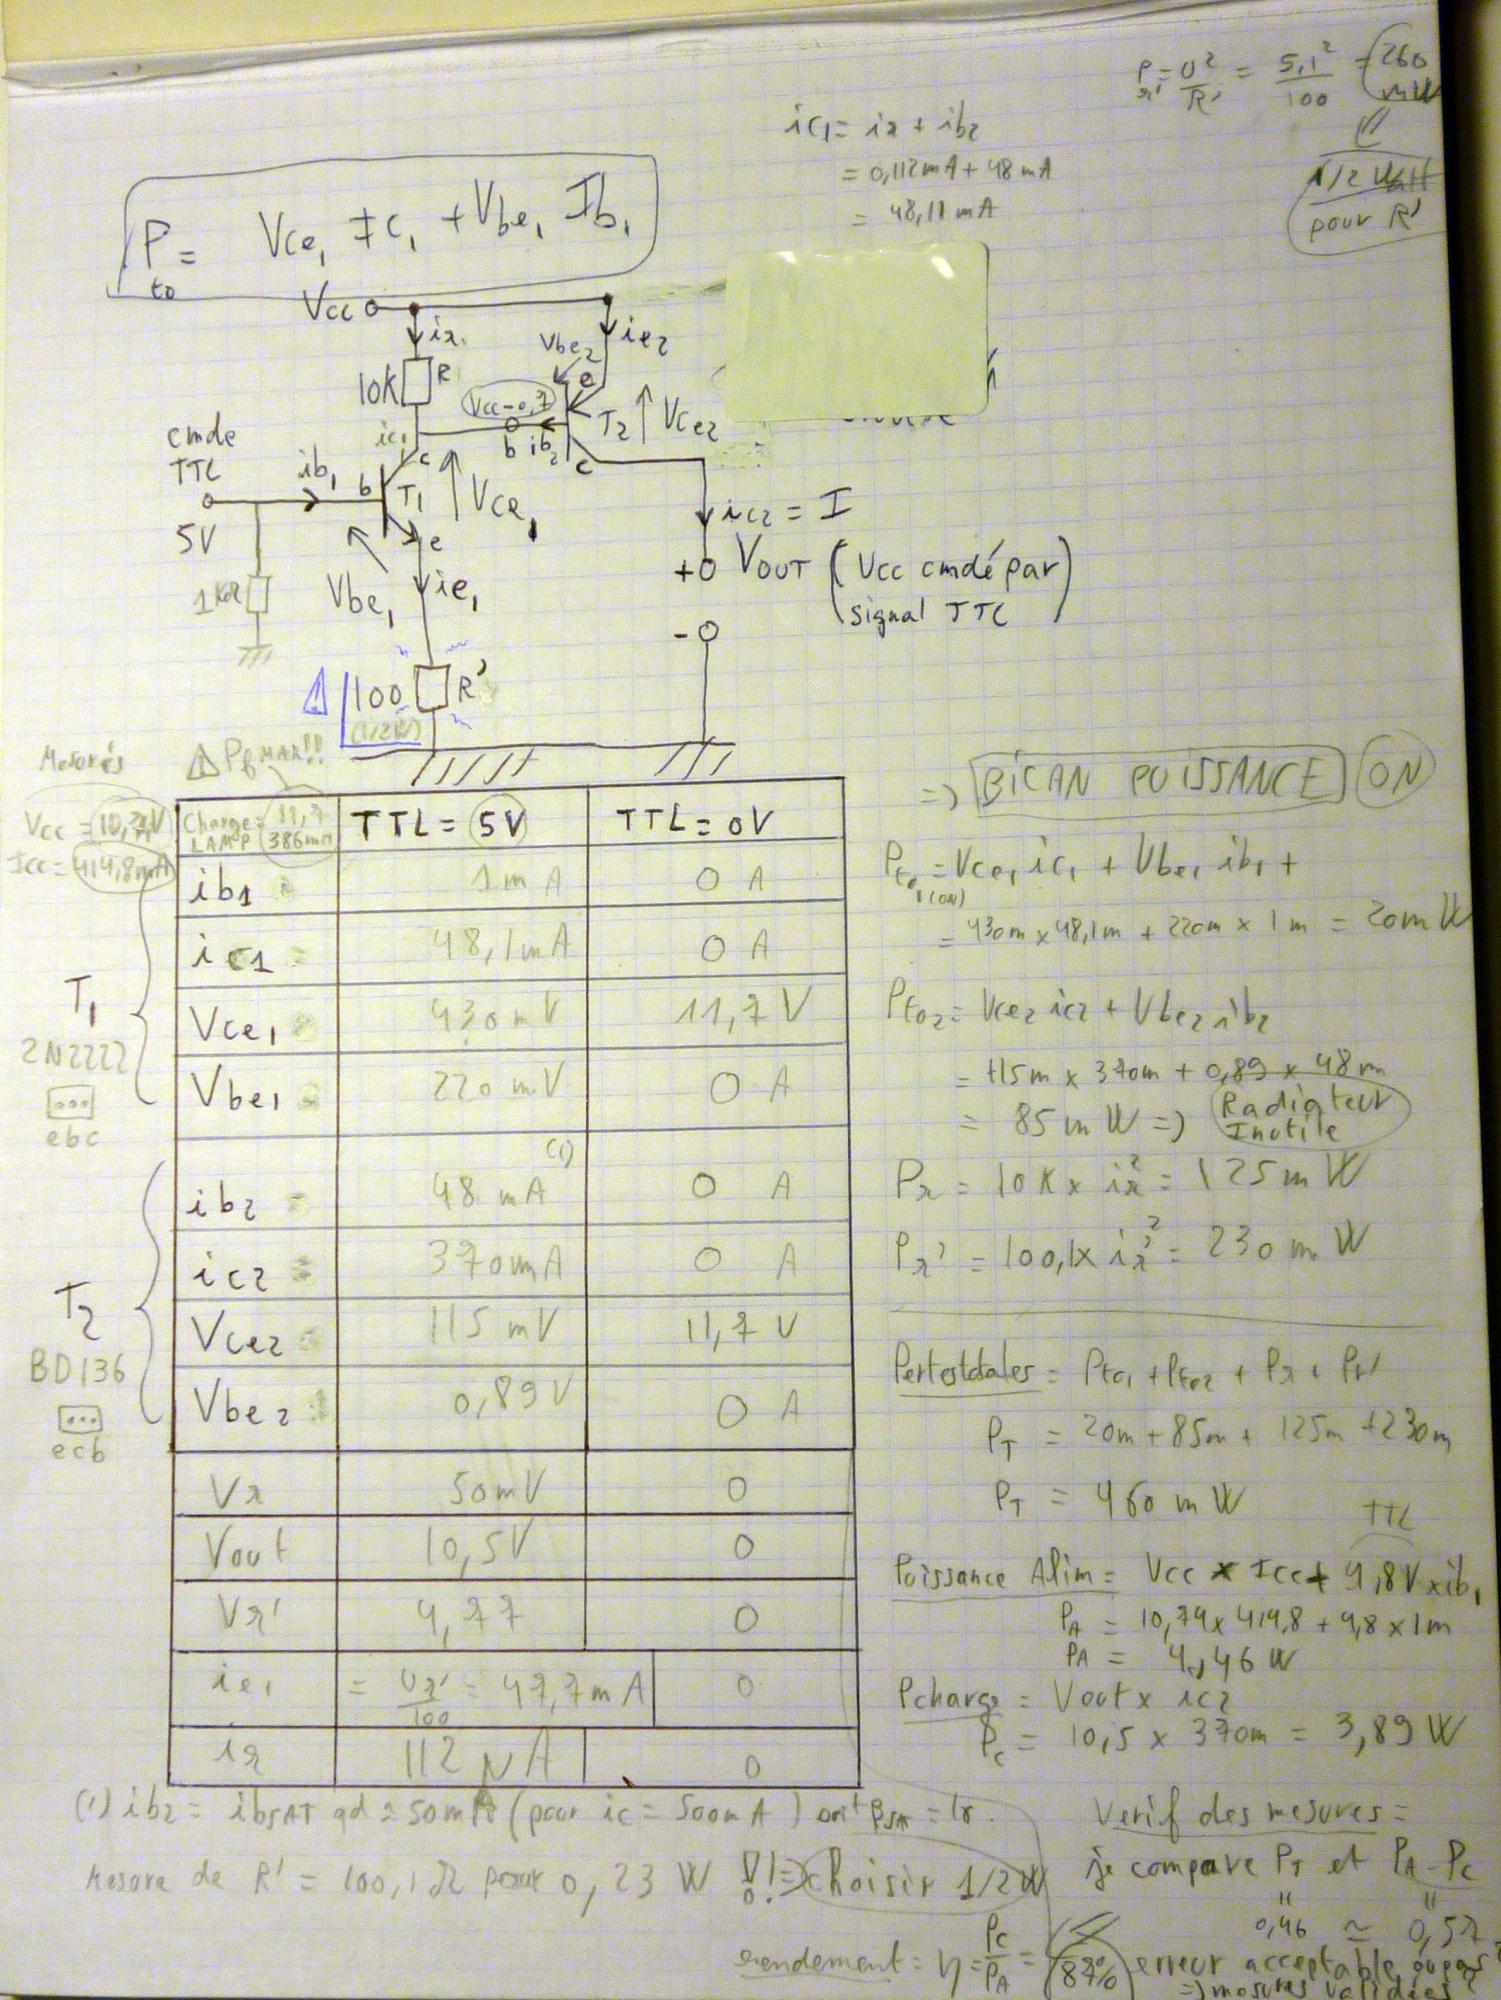 P = U² / R' = 5,1² / 100 = 260 mW
r'
1/2 Watt
pour R'
ic1 = ir + ib2
= 0,112 mA + 48 mA
= 48,11 mA
P = Vce1 Ic1 + Vbe1 Ib1
to
Vcc
ir
ie2
Vbe2
10K R
Vcc-0,7
e
T2
Vce2
b ib2
c
ic1
c
cmde
TTL
5V
ib1
b
T1
Vce1
e
ic2 = I
1KΩ
Vbe1
ie1
+ VOUT (Vcc cmdé par
signal TTL)
-
100 R'
(1/2W)
Mesurés
Vcc = 10,74V
Icc = 414,8mA
Charge = 11,7
LAMP 386mA
TTL = 5V
TTL = 0V
ib1 1mA 0 A
ic1 48,1mA 0 A
Vce1 430mV 11,7 V
Vbe1 220 mV 0 A
T1
2N2222
ebc
(1)
ib2 48 mA 0 A
ic2 370mA 0 A
Vce2 115 mV 11,7 V
Vbe2 0,89V 0 A
T2
BD136
ecb
Vr 50mV 0
Vout 10,5V 0
Vr' 4,77 0
ie1 = Ur' / 100 = 47,7mA 0
ir 112 µA 0
=> BILAN PUISSANCE ON
Pto1(ON) = Vce1 ic1 + Vbe1 ib1 +
= 430m x 48,1m + 220m x 1m = 20mW
Pto2 = Vce2 ic2 + Vbe2 ib2
= 115m x 370m + 0,89 x 48m
= 85 mW => Radiateur
Inutile
Pr = 10K x ir² = 125 mW
Pr' = 100,1 x ir'² = 230 mW
Pertes totales = Pto1 + Pto2 + Pr + Pr'
PT = 20m + 85m + 125m + 230m
PT = 460 mW
TTL
Puissance Alim = Vcc x Icc + 9,8V x ib1
PA = 10,74 x 414,8 + 9,8 x 1m
PA = 4,46 W
Pcharge = Vout x ic2
Pc = 10,5 x 370m = 3,89 W
(1) ib2 = ibSAT qd ≈ 50mA (pour ic = 500mA)
mesure de R' = 100,1Ω pour 0,23 W !! => choisir 1/2W
Vérif des mesures =
je compare PT et PA - Pc
0,46 ≃ 0,57
rendement = η = Pc / PA = 87%
erreur acceptable
=> mesures validées